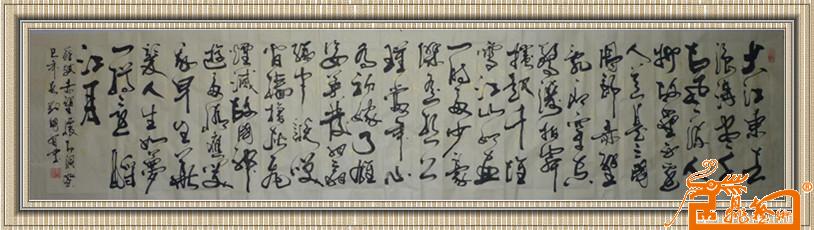 大江東去
浪淘尽千
古風流人
物故壘西邊
人道是三國
周郎赤壁
亂石穿空
驚濤拍岸
捲起千堆
雪江山如画
一時多少豪
傑遙想公
瑾當年小
喬初嫁了雄
姿英發羽扇
綸巾談笑
間檣櫓灰飛
煙滅故國神
遊多情應笑
我早生華
髮人生如夢
一樽還酹
江月